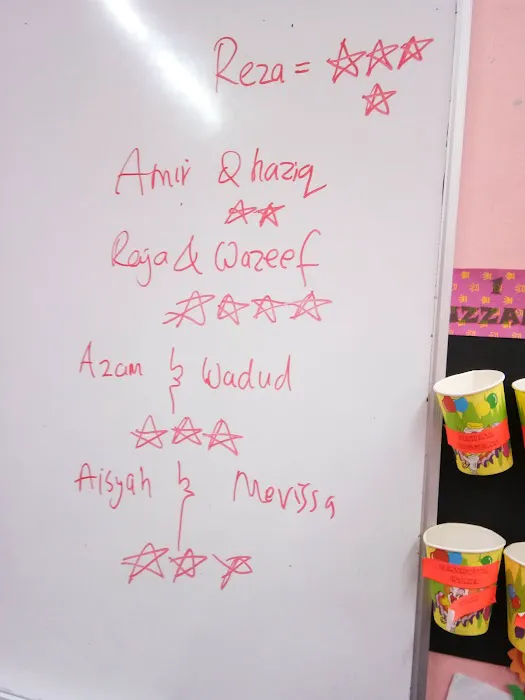 Reza = ☆☆☆
☆
Amir Qhaziq
☆☆
Raja & Wazeef
☆☆☆☆
Azam & Wadud
☆☆☆
Aisyah & Merissa
☆☆☆
1
IZZA